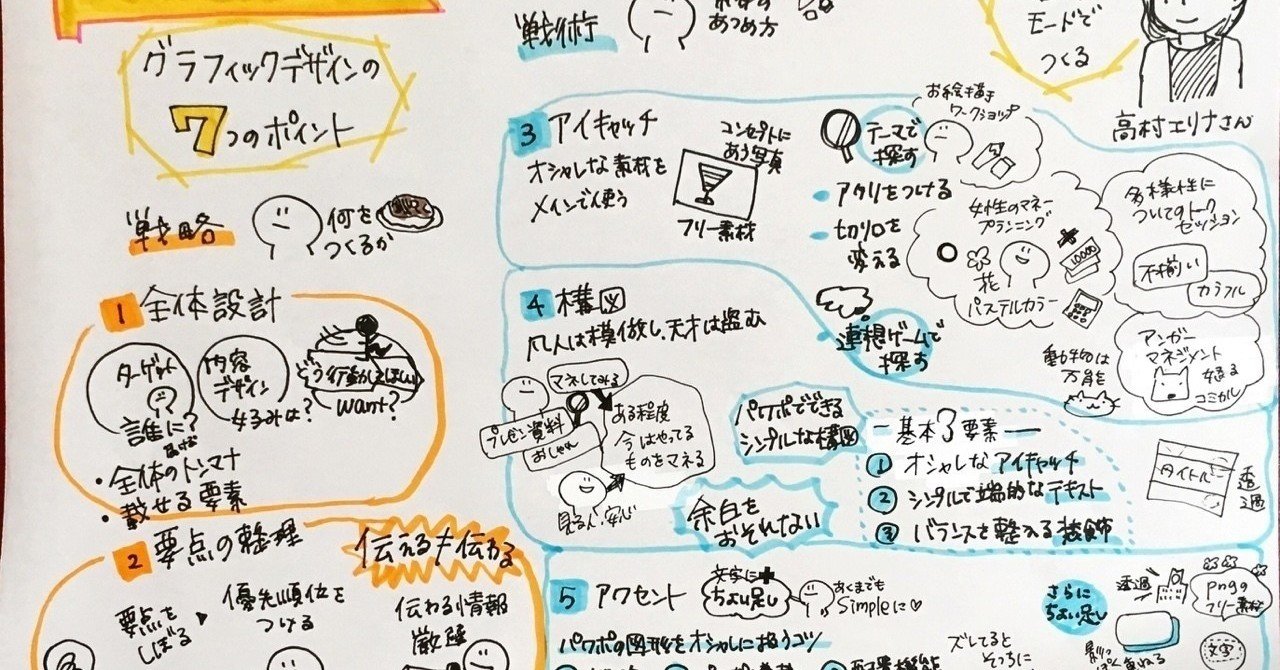 グラフィックデザインの
7つのポイント
戦略
何を
つくるか
1 全体設計
ターゲット
誰に?
内容
デザイン
好みは?
どう行動してほしい
want?
・全体のトンマナ
・載せる要素
2 要点の整理
伝える≠伝わる
要点を
しぼる
優先順位を
つける
伝わる情報
戦術
あつめ方
モードで
つくる
高村エリナさん
3 アイキャッチ
オシャレな素材を
メインで使う
コンセプトに
あう写真
フリー素材
テーマで
探す
・アタリをつける
・切り口を
変える
お絵描き
ワークショップ
女性のマネー
プランニング
花
パステルカラー
10000
多様性に
ついてのトーク
セッション
不揃い
カラフル
連想ゲームで
探す
動物は
万能
アンガー
マネジメント
怒る
コミカル
4 構図
凡人は模倣し、天才は盗む
マネしてみる
プレゼン資料
おしゃれ
ある程度
今はやってる
ものをマネる
見る人安心
パワポでできる
シンプルな構図
余白を
おそれない
基本3要素
① オシャレなアイキャッチ
② シンプルで端的なテキスト
③ バランスを整える装飾
タイトル
透過
5 アクセント
文字に+
ちょい足し
あくまでも
Simpleに♡
パワポの図形をオシャレに扱うコツ
さらに
ちょい足し
透過
pngの
フリー素材
文字
ズレてると
そっちに